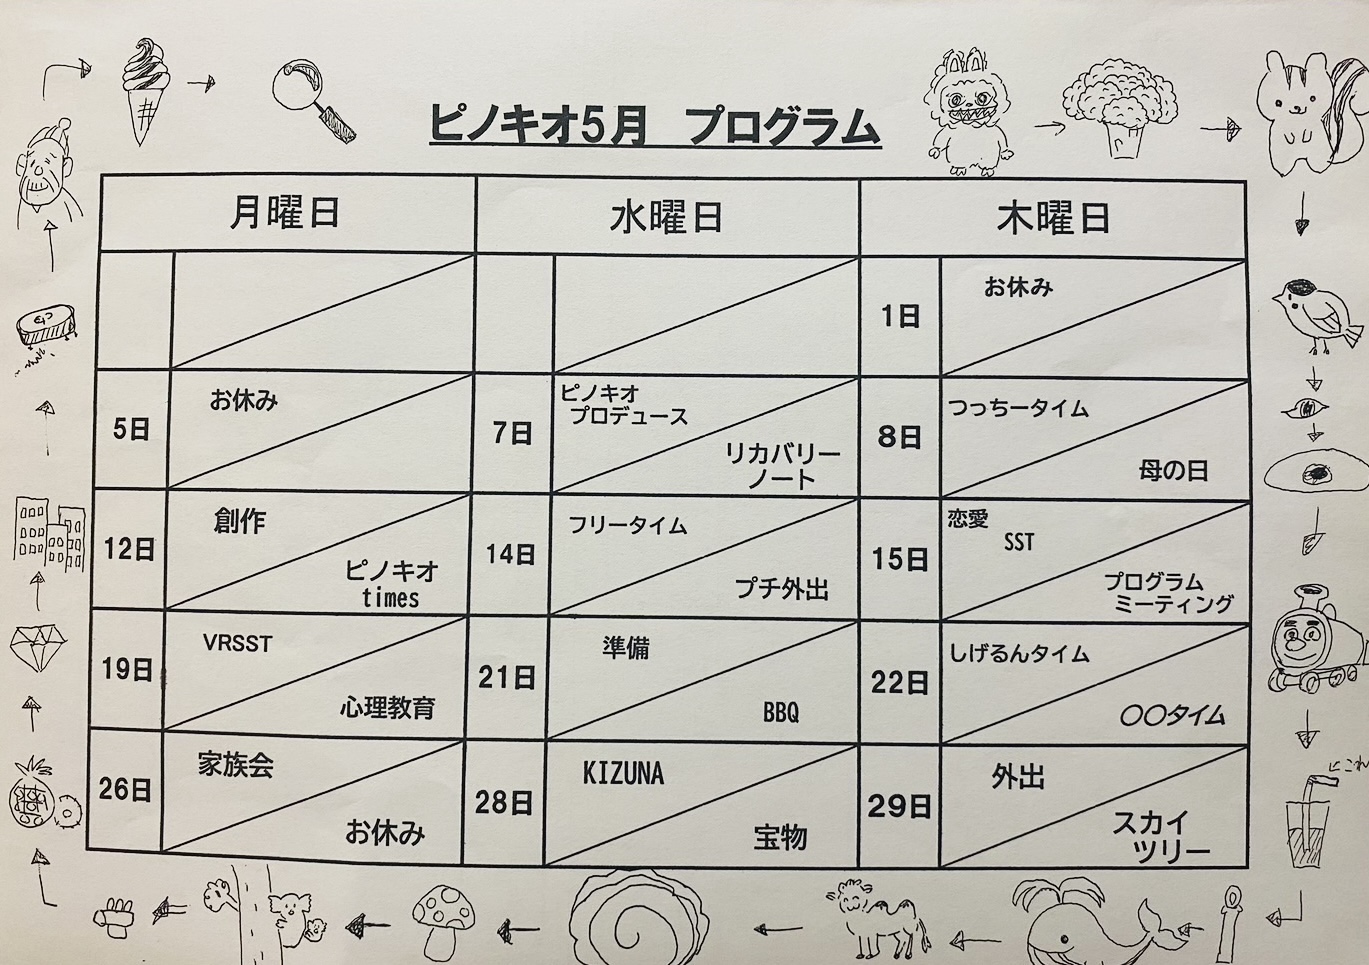 ピノキオ5月　プログラム
月曜日
水曜日
木曜日
1日
お休み
5日
お休み
7日
ピノキオ
プロデュース
リカバリー
ノート
8日
つっちータイム
母の日
12日
創作
ピノキオ
times
14日
フリータイム
プチ外出
15日
恋愛
SST
プログラム
ミーティング
19日
VRSST
心理教育
21日
準備
BBQ
22日
しげるんタイム
〇〇タイム
26日
家族会
お休み
28日
KIZUNA
宝物
29日
外出
スカイ
ツリー